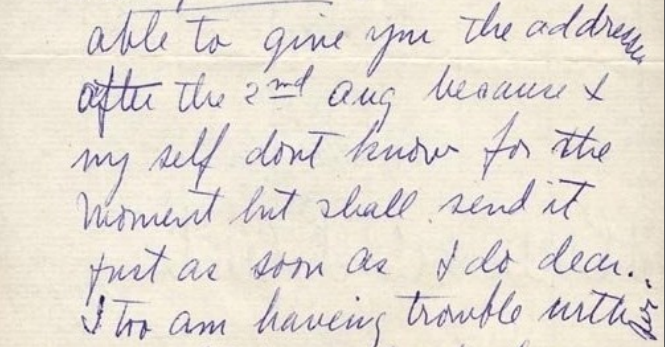 able to give you the addresses
after the 2nd aug because I
my self dont know for the
moment but shall send it
just as soon as I do dear.
I too am having trouble with